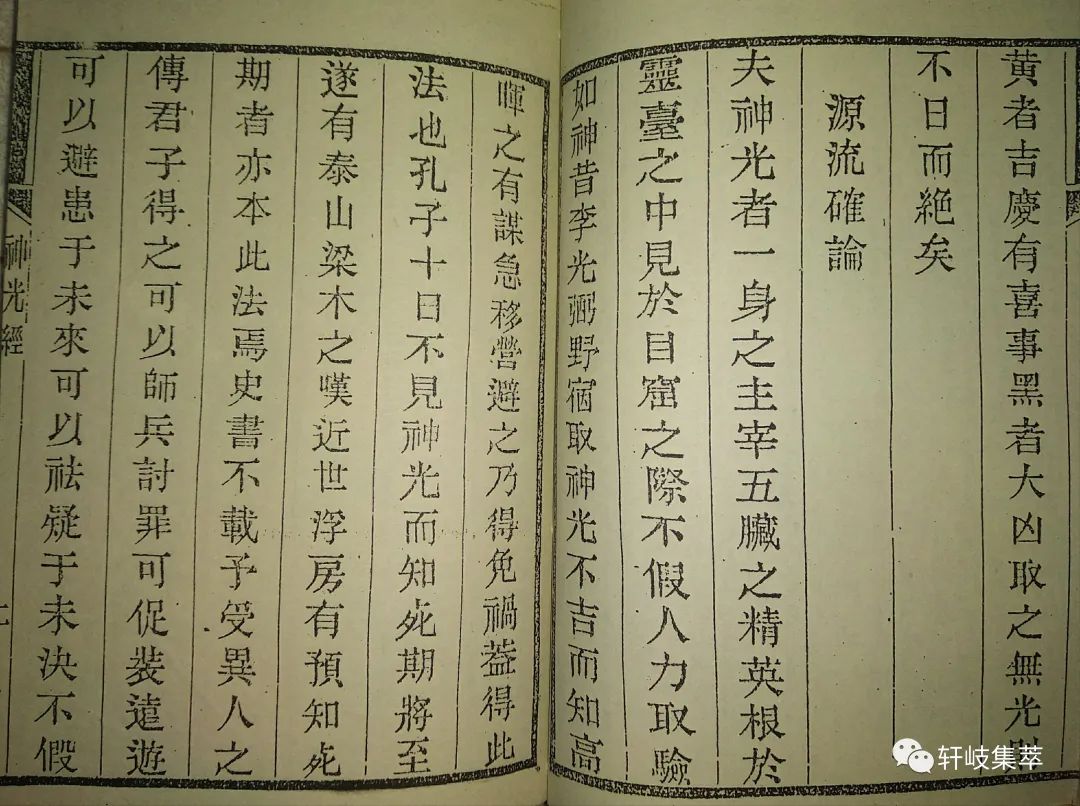 黄者吉慶有喜事黑者大凶取之無光則
不日而絶矣
源流確論
夫神光者一身之主宰五臟之精英根於
靈臺之中見於目窟之際不假人力取驗
如神昔李光弼野宿取神光不吉而知高
暉之有謀急移營避之乃得免禍葢得此
法也孔子十日不見神光而知死期將至
遂有泰山梁木之嘆近世浮房有預知死
期者亦本此法焉史書不載予受異人之
傳君子得之可以師兵討罪可促裝遠遊
可以避患于未來可以祛疑于未決不假
神光經
轩岐集萃